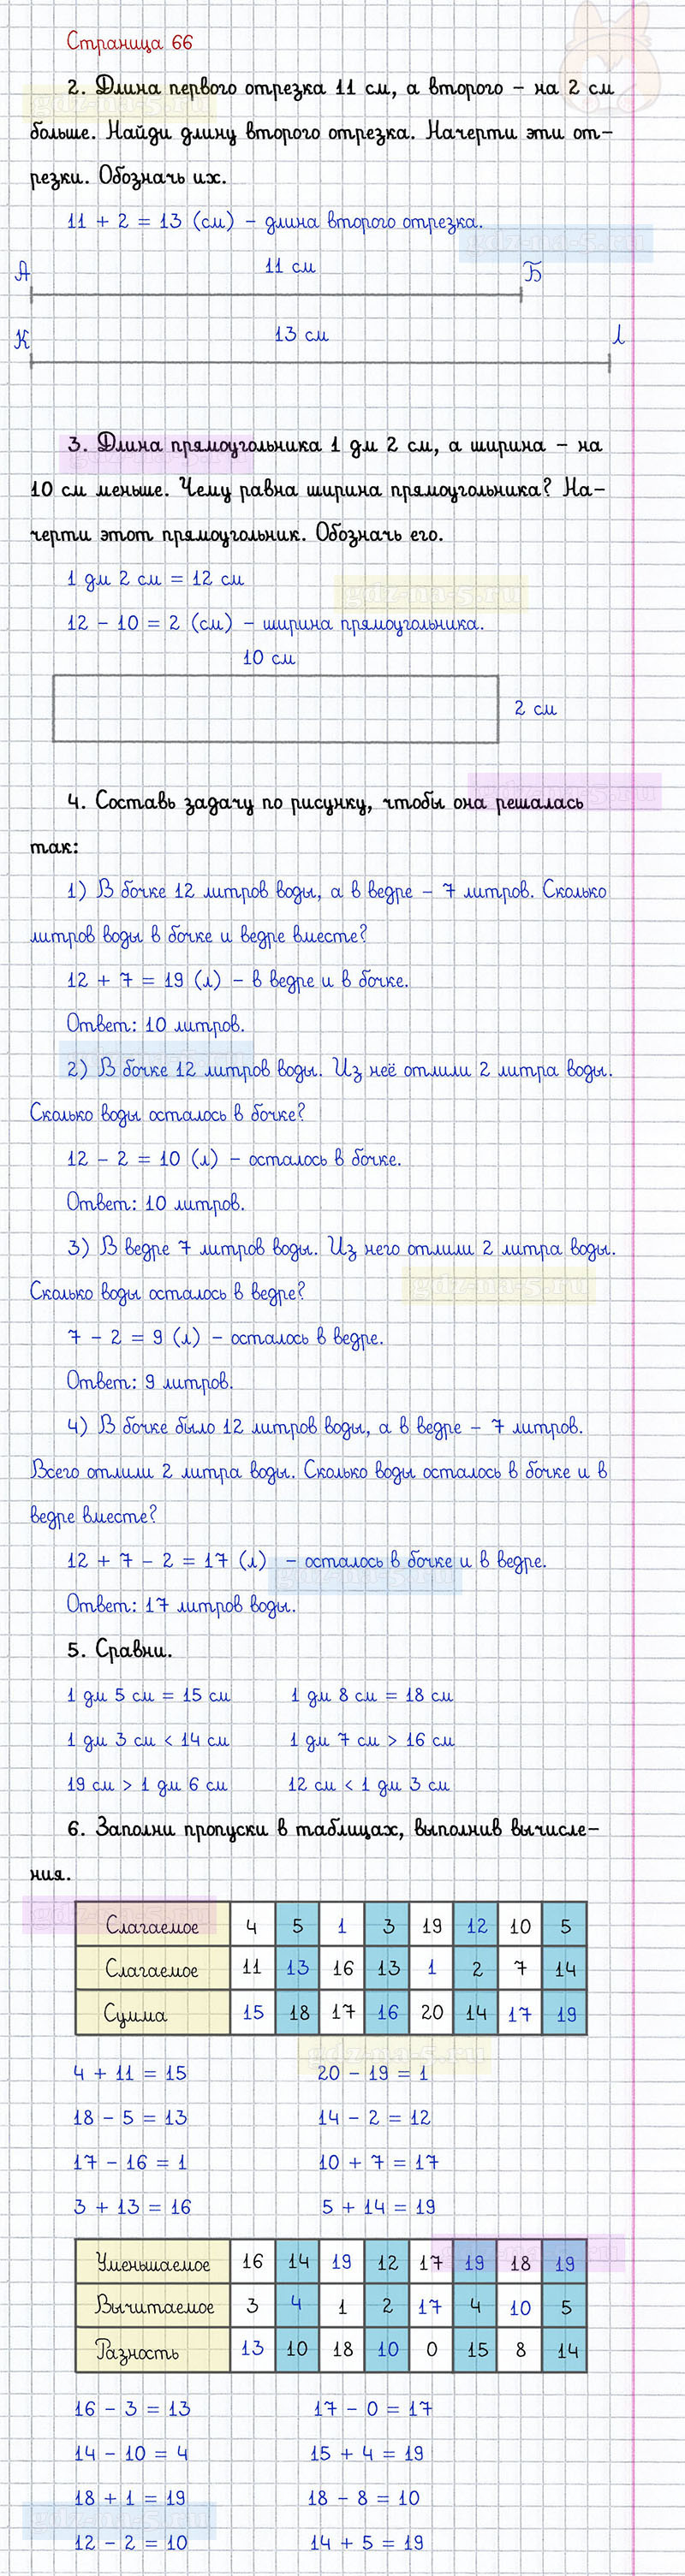 Страница 66
2. Длина первого отрезка 11 см, а второго – на 2 см
больше. Найди длину второго отрезка. Начерти эти от-
резки. Обозначь их.
11 + 2 = 13 (см) – длина второго отрезка.
gdz-na-5.ru
А 11 см Б
К 13 см Л
3. Длина прямоугольника 1 дм 2 см, а ширина – на
10 см меньше. Чему равна ширина прямоугольника? На-
черти этот прямоугольник. Обозначь его.
1 дм 2 см = 12 см
gdz-na-5.ru
12 – 10 = 2 (см) – ширина прямоугольника.
10 см
2 см
4. Составь задачу по рисунку, чтобы она решалась
так:
1) В бочке 12 литров воды, а в ведре – 7 литров. Сколько
литров воды в бочке и ведре вместе?
12 + 7 = 19 (л) – в ведре и в бочке.
Ответ: 10 литров.
2) В бочке 12 литров воды. Из неё отлили 2 литра воды.
Сколько воды осталось в бочке?
12 – 2 = 10 (л) – осталось в бочке.
Ответ: 10 литров.
3) В ведре 7 литров воды. Из него отлили 2 литра воды.
Сколько воды осталось в ведре?
gdz-na-5.ru
7 – 2 = 9 (л) – осталось в ведре.
Ответ: 9 литров.
4) В бочке было 12 литров воды, а в ведре – 7 литров.
Всего отлили 2 литра воды. Сколько воды осталось в бочке и в
ведре вместе?
12 + 7 – 2 = 17 (л) – осталось в бочке и в ведре.
Ответ: 17 литров воды.
5. Сравни.
1 дм 5 см = 15 см 1 дм 8 см = 18 см
1 дм 3 см < 14 см 1 дм 7 см > 16 см
19 см > 1 дм 6 см 12 см < 1 дм 3 см
6. Заполни пропуски в таблицах, выполнив вычисле-
ния.
Слагаемое 4 5 1 3 19 12 10 5
Слагаемое 11 13 16 13 1 2 7 14
Сумма 15 18 17 16 20 14 17 19
gdz-na-5.ru
4 + 11 = 15 20 – 19 = 1
18 – 5 = 13 14 – 2 = 12
17 – 16 = 1 10 + 7 = 17
3 + 13 = 16 5 + 14 = 19
Уменьшаемое 16 14 19 12 17 19 18 19
Вычитаемое 3 4 1 2 17 4 10 5
Разность 13 10 18 10 0 15 8 14
16 – 3 = 13 17 – 0 = 17
14 – 10 = 4 15 + 4 = 19
18 + 1 = 19 18 – 8 = 10
12 – 2 = 10 14 + 5 = 19